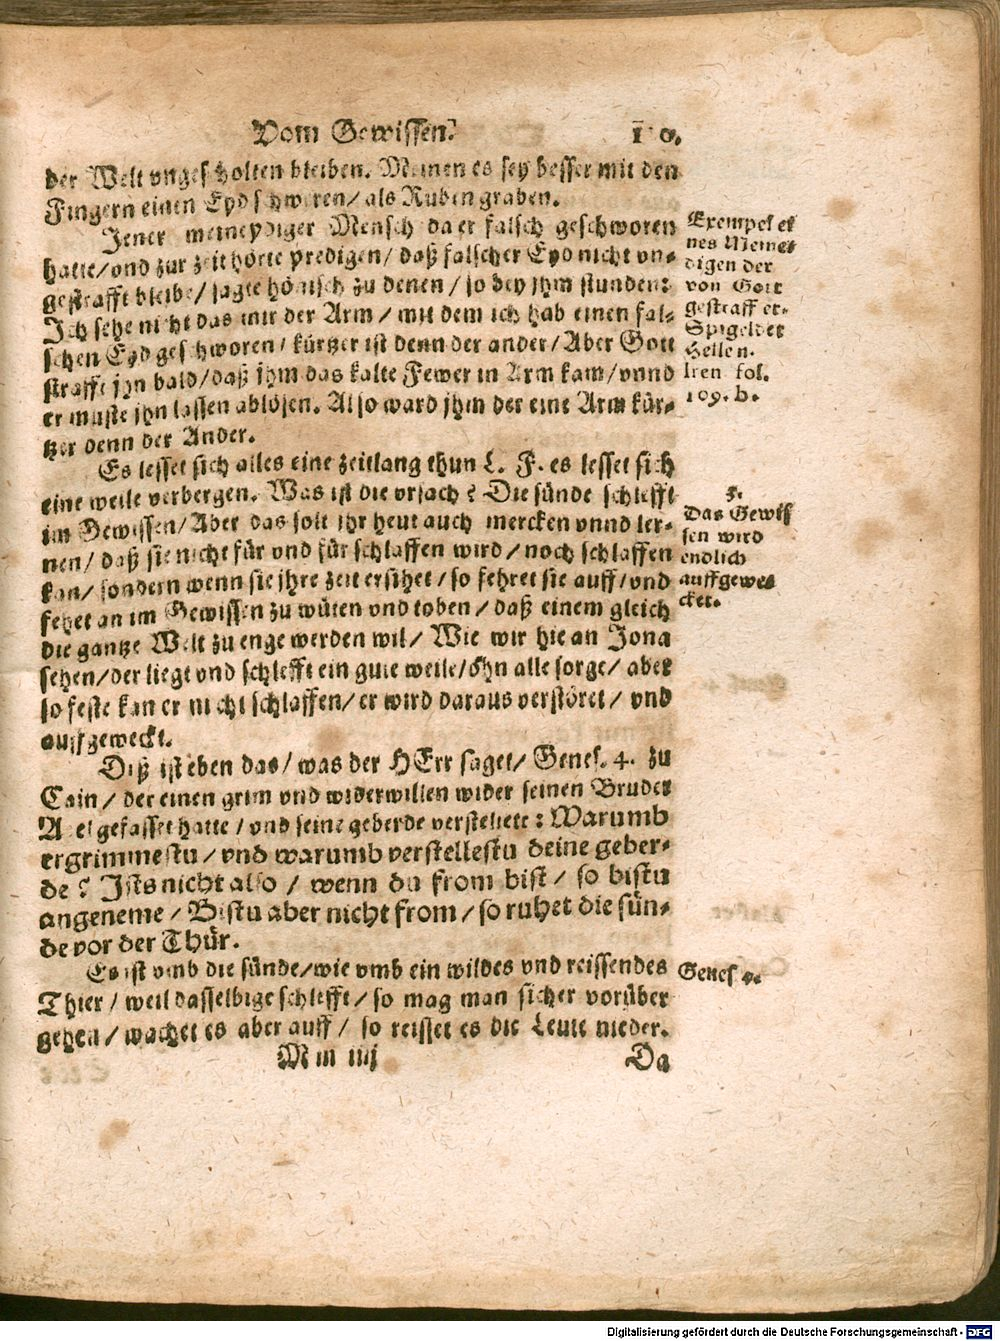 Vom Gewissen.
der Welt ungescholten bleiben. Meinen es sey besser mit den
Fingern einen Eyd schweren / als Rüben graben.
Jener meineydiger Mensch da er falsch geschworen
hatte / vnd zur zeit hörte predigen / daß falscher Eyd nicht vn-
gestrafft bleibe / sagte hönisch zu denen / so bey jhm stunden:
Ich sehe nicht das mir der Arm / mit dem ich hab einen fal-
schen Eyd geschworen / kürtzer ist denn der ander / Aber Gott
straffte jhn bald / daß jhm das kalte Fewer in Arm kam / vnnd
er muste jhn lassen ablösen. Also ward jhm der eine Arm kür-
tzer denn der Ander.
Exempel ei
nes Meinei-
digen der
von Gott
gestrafft er-
Spigel der
Hellen.
lren fol.
109. b.
Es lesset sich alles eine zeitlang thun L. F. es lesset sich
eine weile verbergen. Was ist die vrsach? Die sünde schlefft
im Gewissen / Aber das solt jhr heut auch mercken vnnd ler-
nen / daß sie nicht für vnd für schlaffen wird / noch schlaffen
kan / sondern wenn sie jhre zeit ersihet / so fehret sie auff / vnd
fehet an im Gewissen zu wüten vnd toben / daß einem gleich
die gantze Welt zu enge werden wil / Wie wir hie an Jona
sehen / der liegt vnd schlefft ein gute weile / ohn alle sorge / aber
so feste kan er nicht schlaffen / er wird daraus verstöret / vnd
auffgeweckt.
5.
Das Gewis
sen wird
endlich
auffgewe-
cket.
Diß ist eben das / was der HErr saget / Genes. 4. zu
Cain / der einen grim vnd widerwillen wider seinen Bruder
Abel gefasset hatte / vnd seine geberde verstellete: Warumb
ergrimmestu / vnd warumb verstellestu deine geber-
de? Ists nicht also / wenn du from bist / so bistu
angeneme / Bistu aber nicht from / so ruhet die sün-
de vor der Thür.
Es ist vmb die sünde / wie vmb ein wildes vnd reissendes
Thier / weil dasselbige schlefft / so mag man sicher vorüber
gehen / wachet es aber auff / so reisset es die Leute nieder.
Genes 4.
Mm iiij
Da
Digitalisierung gefördert durch die Deutsche Forschungsgemeinschaft - DFG